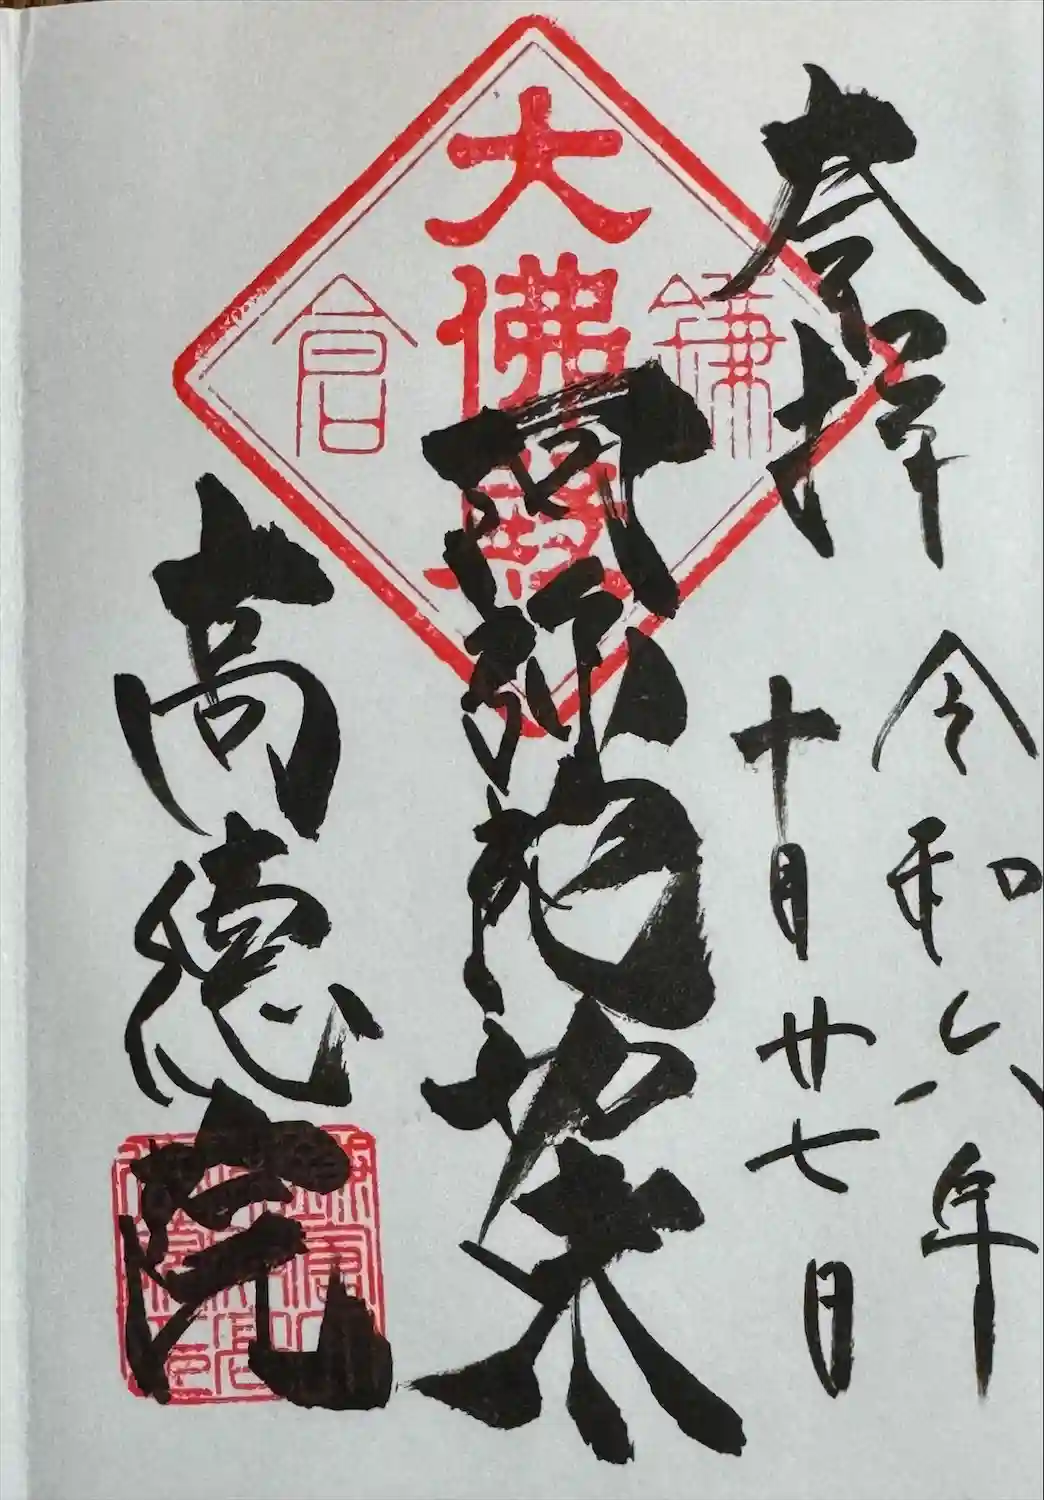 奉拝
令和六年
十月廿七日
鎌倉
大佛尊
阿弥陀如来
高徳院